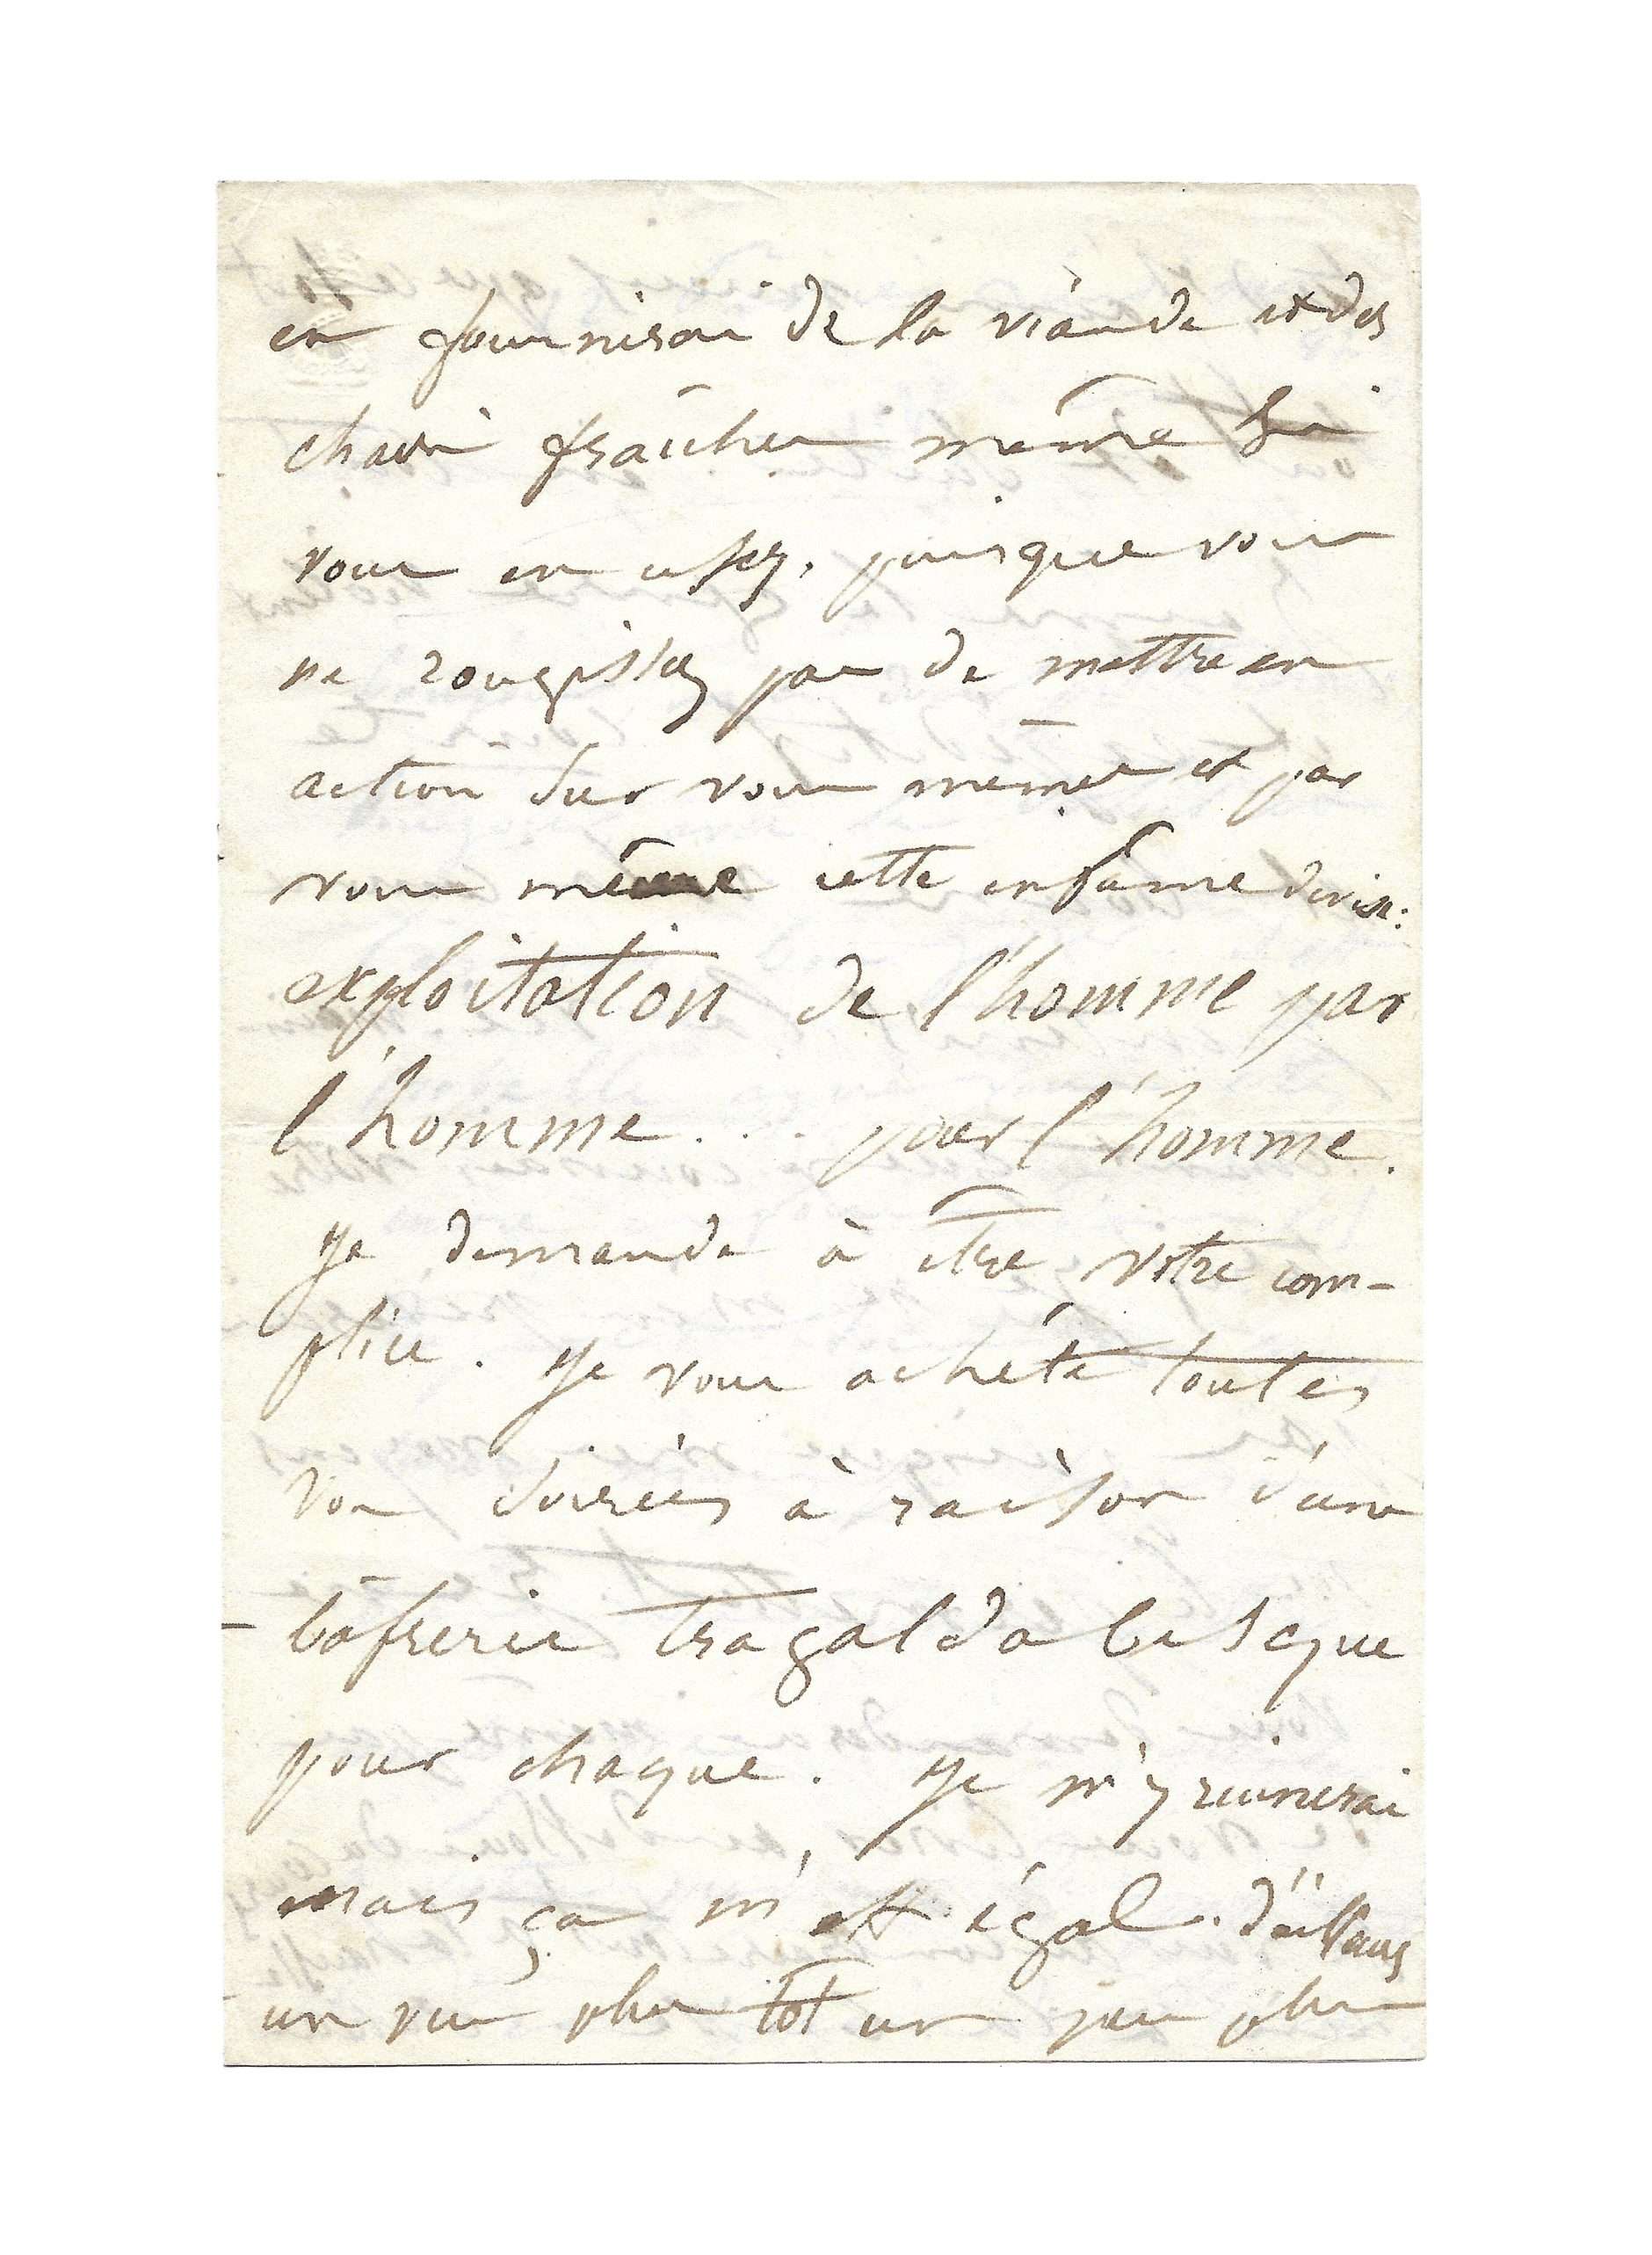 en fournirai de la viande et des
chairs fraîches même si
vous en usez, puisque vous
ne rougissez pas de mettre en
action sur vous même et par
vous même cette infâme devise:
exploitation de l'homme par
l'homme... pour l'homme.
Je demande à être votre com-
plice. Je vous achète toutes
vos soirées à raison d'une
bâfrerie tragaldabasque
pour chaque. Je m'y ruinerai
mais ça m'est égal. d'ailleurs
un peu plus tôt un peu plus